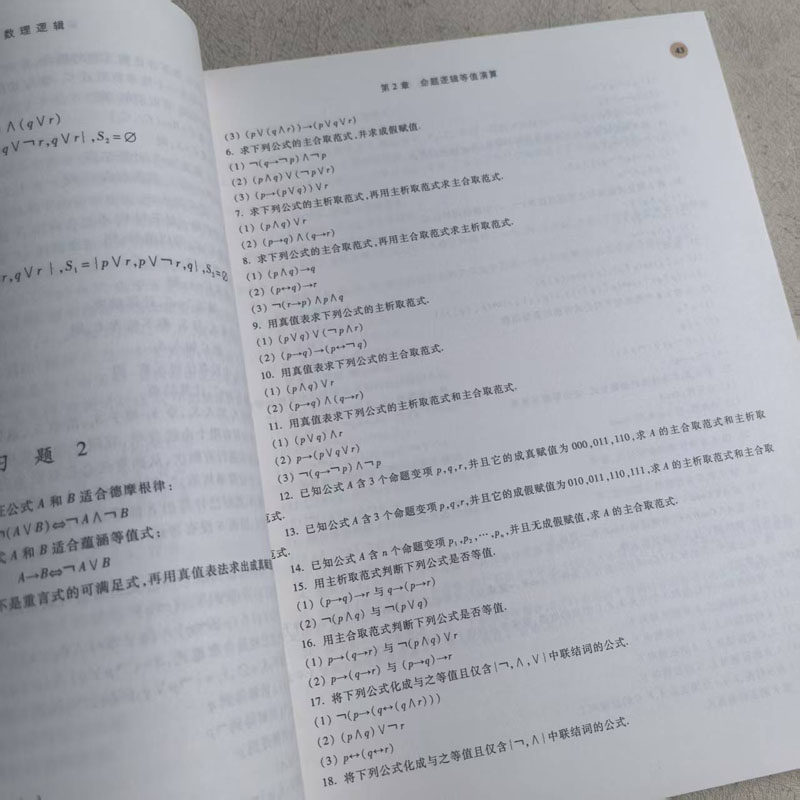 数理逻辑
∧(q∨r)
q∨¬r,q∨r|,S₂=∅
r,q∨r|,S₁=|p∨r,p∨¬r,q|,S₂=∅
习 题 2
公式 A 和 B 适合德摩根律:
¬(A∨B)⇔¬A∧¬B
式 A 和 B 适合蕴涵等值式:
A→B⇔¬A∨B
不是重言式的可满足式,再用真值表法求出成真赋
43
第2章 命题逻辑等值演算
(3) (p∨(q∧r))→(p∨q∨r)
6. 求下列公式的主合取范式,并求成假赋值.
(1) ¬(q→¬p)∧¬p
(2) (p∧q)∨(¬p∨r)
(3) (p→(p∨q))∨r
7. 求下列公式的主析取范式,再用主析取范式求主合取范式.
(1) (p∧q)∨r
(2) (p→q)∧(q→r)
8. 求下列公式的主合取范式,再用主合取范式求主析取范式.
(1) (p∧q)→q
(2) (p↔q)→r
(3) ¬(r→p)∧p∧q
9. 用真值表求下列公式的主析取范式.
(1) (p∨q)∨(¬p∧r)
(2) (p→q)→(p↔¬q)
10. 用真值表求下列公式的主合取范式.
(1) (p∧q)∨r
(2) (p→q)∧(q→r)
11. 用真值表求下列公式的主析取范式和主合取范式.
(1) (p∨q)∧r
(2) p→(p∨q∨r)
(3) ¬(q→¬p)∧¬p
12. 已知公式 A 含 3 个命题变项 p,q,r,并且它的成真赋值为 000,011,110,求 A 的主合取范式和主析取
范式.
13. 已知公式 A 含 3 个命题变项 p,q,r,并且它的成假赋值为 010,011,110,111,求 A 的主析取范式和主合取
范式.
14. 已知公式 A 含 n 个命题变项 p₁,p₂,⋯,pₙ,并且无成假赋值,求 A 的主合取范式.
15. 用主析取范式判断下列公式是否等值.
(1) (p→q)→r 与 q→(p→r)
(2) ¬(p∧q) 与 ¬(p∨q)
16. 用主合取范式判断下列公式是否等值.
(1) p→(q→r) 与 ¬(p∧q)∨r
(2) p→(q→r) 与 (p→q)→r
17. 将下列公式化成与之等值且仅含|¬,∧,∨|中联结词的公式.
(1) ¬(p→(q↔(q∧r)))
(2) (p∧q)∨¬r
(3) p↔(q↔r)
18. 将下列公式化成与之等值且仅含|¬,∧|中联结词的公式.